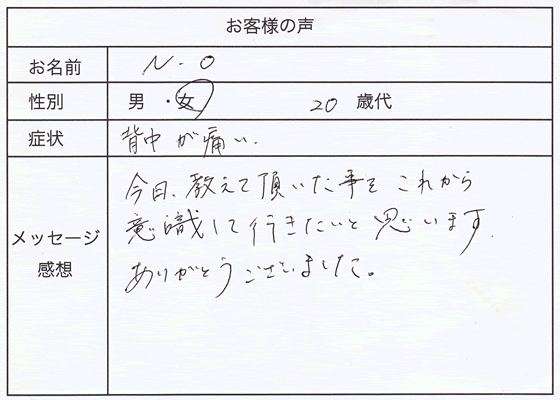 お客様の声
お名前 N-O
性別 男・女 20 歳代
症状 背中が痛い.
メッセージ
感想
今日、教えて頂いた事を これから
意識して行きたいと思います.
ありがとうございました。